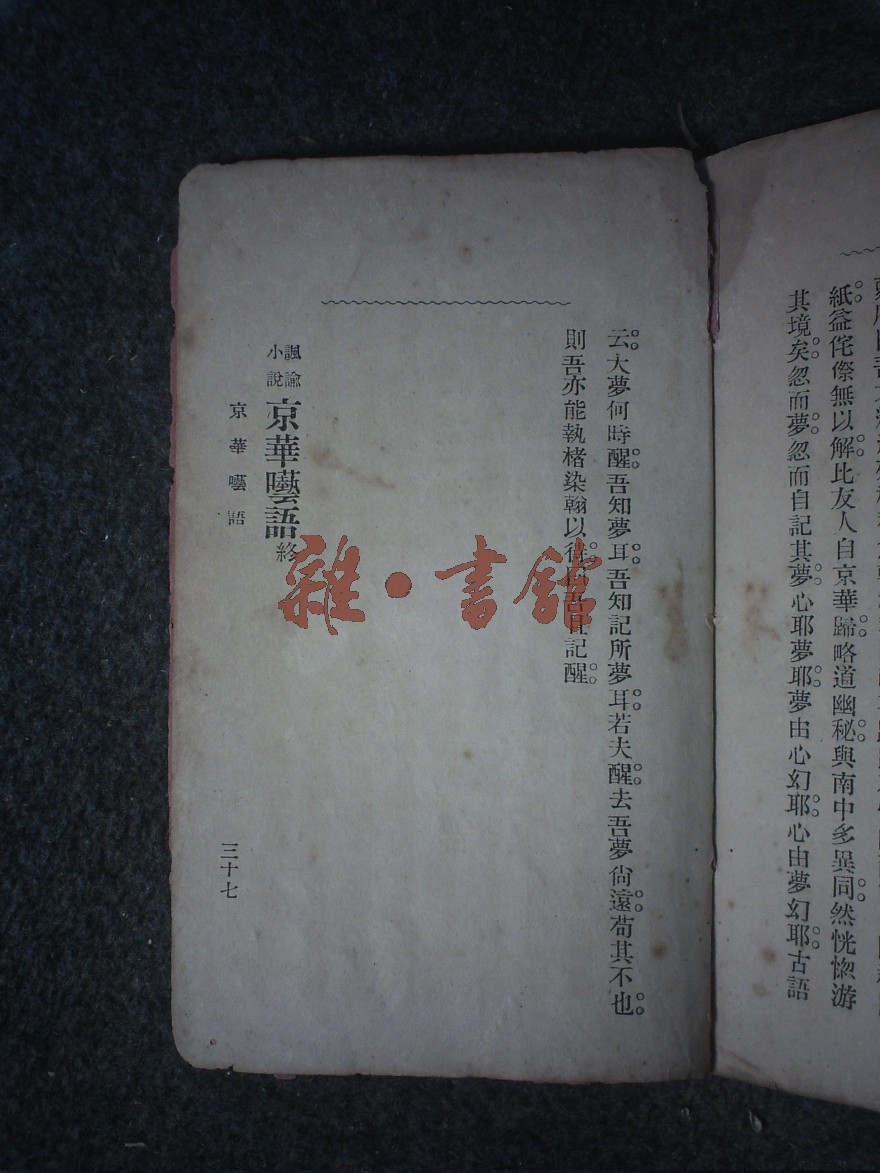 紙益侘傺無以解比友人自京華歸略道幽秘與南中多異同然恍惚游
其境矣忽而夢忽而自記其夢心耶夢耶夢由心幻耶心由夢幻耶古語
云大夢何時醒吾知夢耳吾知記所夢耳若夫醒去吾夢尙遠苟其不也
則吾亦能執楮染翰以待記醒
諷諭小說
京華囈語終
京華囈語
三十七
雜·書館